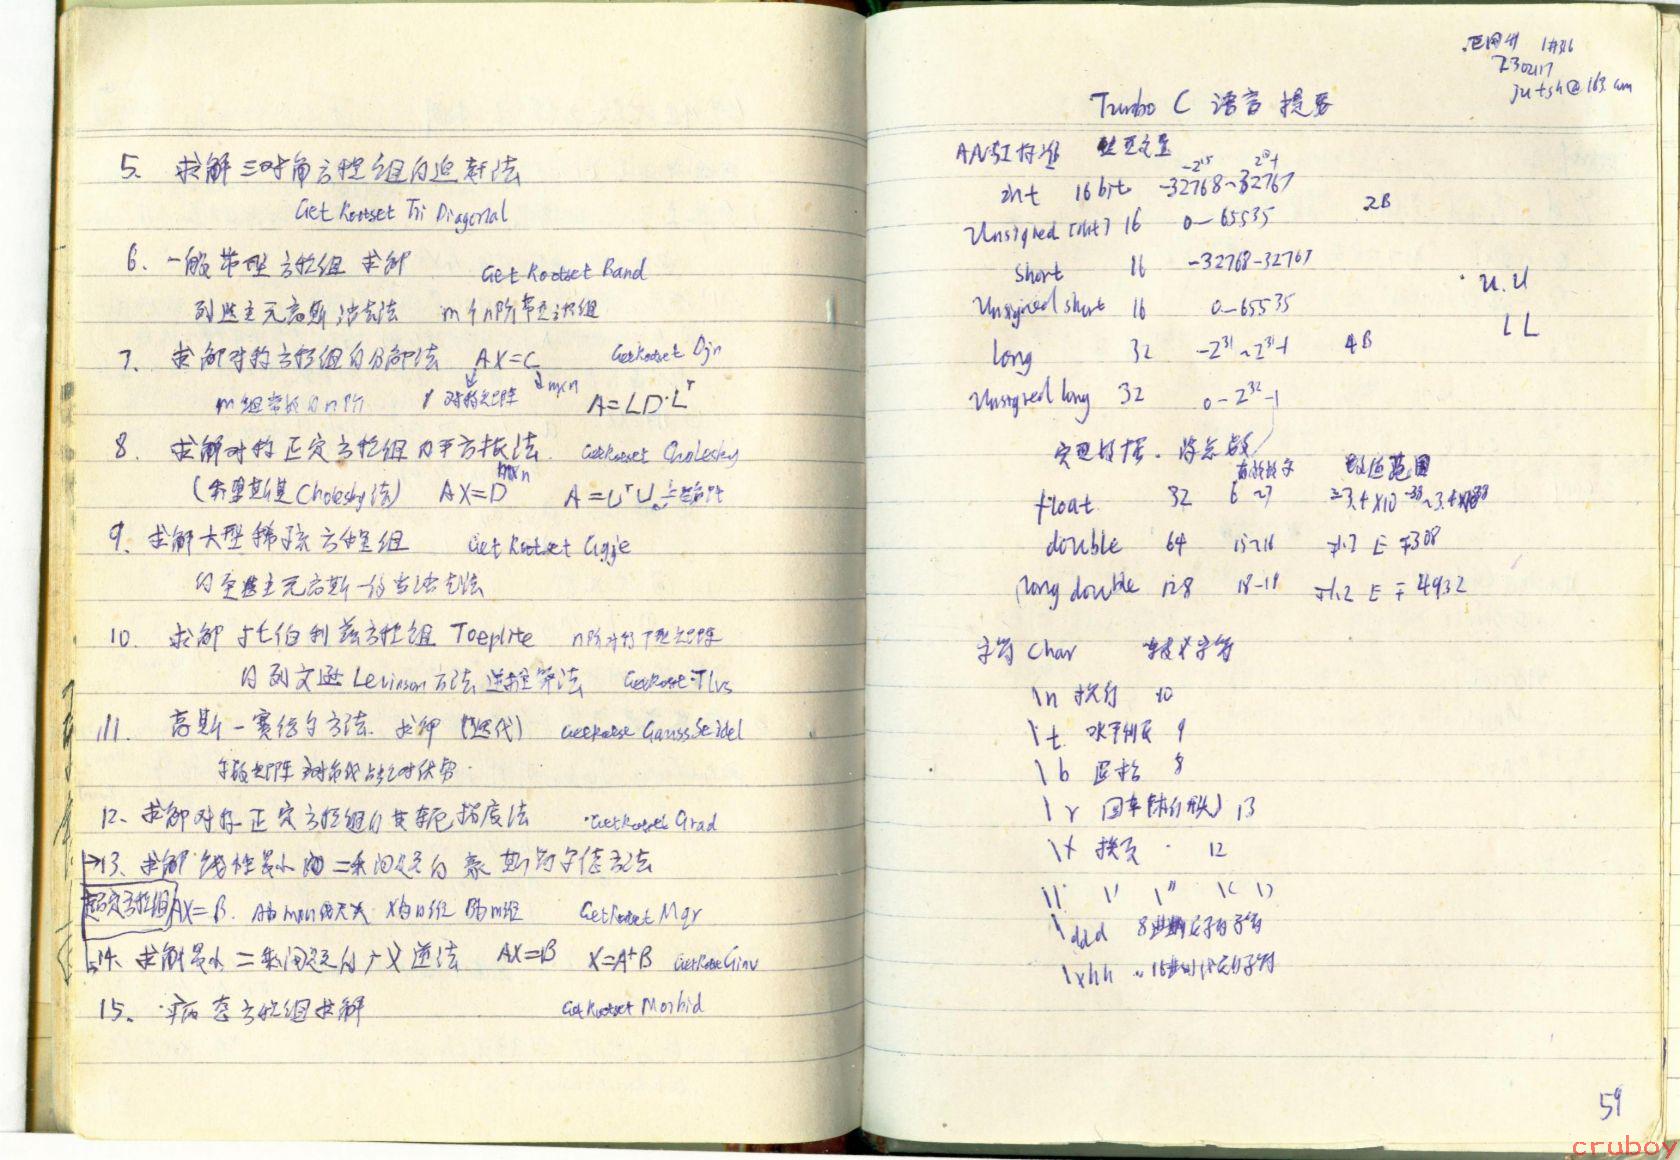 5. 求解三对角方程组的追赶法
Get Rootset Tri Diagonal
6. 一般带型方程组求解 Get Rootset Band
列选主元高斯消去法 m个n阶带型方程组
7. 求解对称方程组的分解法 AX=C GetRootset Djn
m组常数的n阶 对称矩阵 m×n A=LD·Lᵀ
8. 求解对称正定方程组的平方根法 GetRootset Cholesky
(乔里斯基Cholesky法) AX=D m×n A=UᵀU
9. 求解大型稀疏方程组 Get Rootset Ggje
的全选主元高斯-约当消去法
10. 求解托伯利兹方程组 Toeplite n阶对称T型矩阵
的列文逊Levinson方法 递推算法 GetRootset Tlvs
11. 高斯-赛德尔方法 求解 (迭代) GetRootset GaussSeidel
系数矩阵 对角线占绝对优势.
12、求解对称正定方程组的共轭梯度法 GetRootset Grad
→13、求解线性最小二乘问题的豪斯荷尔德方法
超定方程组 AX=B. A为m×n m>n X为n组 B为m组 GetRootset Mqr
14. 求解最小二乘问题的广义逆法 AX=B X=A⁺B GetRootset Ginv
15. 病态方程组求解 GetRootset Morbid
1#316
730217
jutsh@163.com
Turbo C 语言提要
ANSI标准 整型变量
-2¹⁵ 2¹⁵-1
int 16 bit -32768~32767
2B
Unsigned [int] 16 0—65535
short 16 -32768-32767
u.U
Unsigned short 16 0—65535
LL
long 32 -2³¹~2³¹-1 4B
Unsigned long 32 0-2³²-1
实型数据. 浮点数 有效数字 数值范围
float 32 6~7 ±3.4×10⁻³⁸~3.4×10³⁸
double 64 15~16 ±1.7 E ∓308
long double 128 18-19 ±1.2 E ∓4932
字符 Char 转义字符
\n 换行 10
\t 水平制表 9
\b 退格 8
\r 回车(不换行) 13
\f 换页 12
\\ \' \" \( \)
\ddd 8进制表示的字符
\xhh 16进制表示的字符
59
cruboy